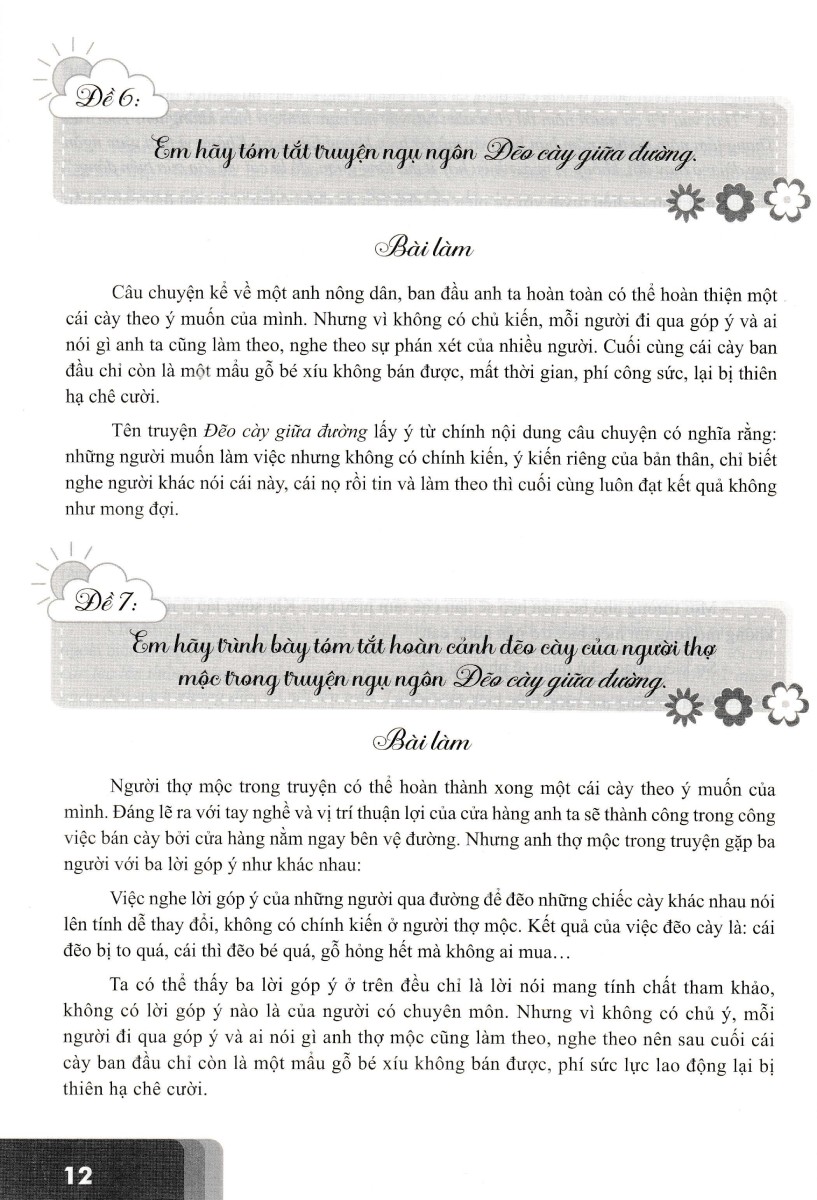 Đề 6:
Em hãy tóm tắt truyện ngụ ngôn Đẽo cày giữa đường.
Bài làm
Câu chuyện kể về một anh nông dân, ban đầu anh ta hoàn toàn có thể hoàn thiện một
cái cày theo ý muốn của mình. Nhưng vì không có chủ kiến, mỗi người đi qua góp ý và ai
nói gì anh ta cũng làm theo, nghe theo sự phán xét của nhiều người. Cuối cùng cái cày ban
đầu chỉ còn là một mẩu gỗ bé xíu không bán được, mất thời gian, phí công sức, lại bị thiên
hạ chê cười.
Tên truyện Đẽo cày giữa đường lấy ý từ chính nội dung câu chuyện có nghĩa rằng:
những người muốn làm việc nhưng không có chính kiến, ý kiến riêng của bản thân, chỉ biết
nghe người khác nói cái này, cái nọ rồi tin và làm theo thì cuối cùng luôn đạt kết quả không
như mong đợi.
Đề 7:
Em hãy trình bày tóm tắt hoàn cảnh đẽo cày của người thợ
mộc trong truyện ngụ ngôn Đẽo cày giữa đường.
Bài làm
Người thợ mộc trong truyện có thể hoàn thành xong một cái cày theo ý muốn của
mình. Đáng lẽ ra với tay nghề và vị trí thuận lợi của cửa hàng anh ta sẽ thành công trong công
việc bán cày bởi cửa hàng nằm ngay bên vệ đường. Nhưng anh thợ mộc trong truyện gặp ba
người với ba lời góp ý như khác nhau:
Việc nghe lời góp ý của những người qua đường để đẽo những chiếc cày khác nhau nói
lên tính dễ thay đổi, không có chính kiến ở người thợ mộc. Kết quả của việc đẽo cày là: cái
đẽo bị to quá, cái thì đẽo bé quá, gỗ hỏng hết mà không ai mua…
Ta có thể thấy ba lời góp ý ở trên đều chỉ là lời nói mang tính chất tham khảo,
không có lời góp ý nào là của người có chuyên môn. Nhưng vì không có chủ ý, mỗi
người đi qua góp ý và ai nói gì anh thợ mộc cũng làm theo, nghe theo nên sau cuối cái
cày ban đầu chỉ còn là một mẩu gỗ bé xíu không bán được, phí sức lực lao động lại bị
thiên hạ chê cười.
12